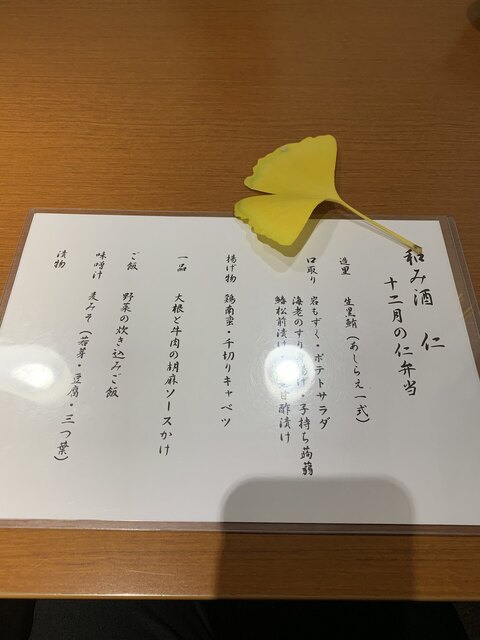 和み酒 仁
十二月の仁弁当
造里 生黒鮪(あしらえ一式)
口取り 岩もずく・ポテトサラダ
海老のすり 揚げ・子持ち蒟蒻
鰊松前漬け 甘酢漬け
揚げ物 鶏南蛮・千切りキャベツ
一品 大根と牛肉の胡麻ソースかけ
ご飯 野菜の炊き込みご飯
味噌汁 麦みそ(若芽・豆腐・三つ葉)
漬物